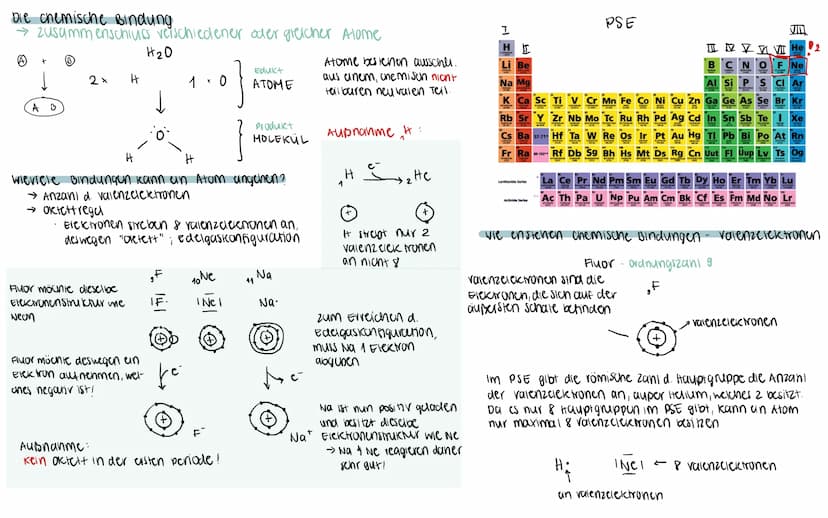 Die chemische Bindung
→ Zusammenschluss verschiedener oder gleicher Atome
H₂O
A + B
2x H 1x O
A B
Edukt
ATOME
O
H H
Produkt
MOLEKÜL
Atome bestehen ausschl.
aus einem, chemisch nicht
teilbaren neutralen Teil.
Außnahme ₁H :
₁H e⁻ ₂He
H strebt nur 2
valenzelektronen
an nicht 8
Wieviele Bindungen kann ein Atom eingehen?
→ Anzahl d. valenzelektronen
→ Oktettregel
· Elektronen streben 8 valenzelektronen an,
deswegen "Oktett" ; edelgaskonfiguration
Fluor möchte dieselbe
Elektronenstruktur wie
Neon
₉F ₁₀Ne ₁₁Na
|F· |Ne| Na·
Fluor möchte deswegen ein
Elektron aufnehmen, wel-
ches negativ ist!
e⁻ e⁻
F⁻ Na⁺
Außnahme:
Kein Oktett in der ersten Periode!
zum Erreichen d.
Edelgaskonfiguration,
muss Na 1 Elektron
abgeben
Na ist nun positiv geladen
und besitzt dieselbe
Elektronenstruktur wie Ne
→ Na & Ne reagieren daher
sehr gut!
PSE
I VIII
H II III IV V VI VII He ! 2
Li Be B C N O F Ne
Na Mg Al Si P S Cl Ar
K Ca Sc Ti V Cr Mn Fe Co Ni Cu Zn Ga Ge As Se Br Kr
Rb Sr Y Zr Nb Mo Tc Ru Rh Pd Ag Cd In Sn Sb Te I Xe
Cs Ba 57-71 Hf Ta W Re Os Ir Pt Au Hg Tl Pb Bi Po At Rn
Fr Ra 89-103 Rf Db Sg Bh Hs Mt Ds Rg Cn Uut Fl Uup Lv Ts Og
Lanthanide Series La Ce Pr Nd Pm Sm Eu Gd Tb Dy Ho Er Tm Yb Lu
Actinide Series Ac Th Pa U Np Pu Am Cm Bk Cf Es Fm Md No Lr
Wie enstehen chemische Bindungen - valenzelektronen
Fluor - ordnungszahl 9
valenzelektronen sind die
Elektronen, die sich auf der
äußersten Schale befinden
₉F
valenzelektronen
Im PSE gibt die römische Zahl d. Hauptgruppe die Anzahl
der valenzelektronen an, außer Helium, welches 2 besitzt.
Da es nur 8 Hauptgruppen im PSE gibt, kann an Atom
nur maximal 8 valenzelektronen besitzen
H· |Ne| ← 8 valenzelektronen
ein valenzelektronen